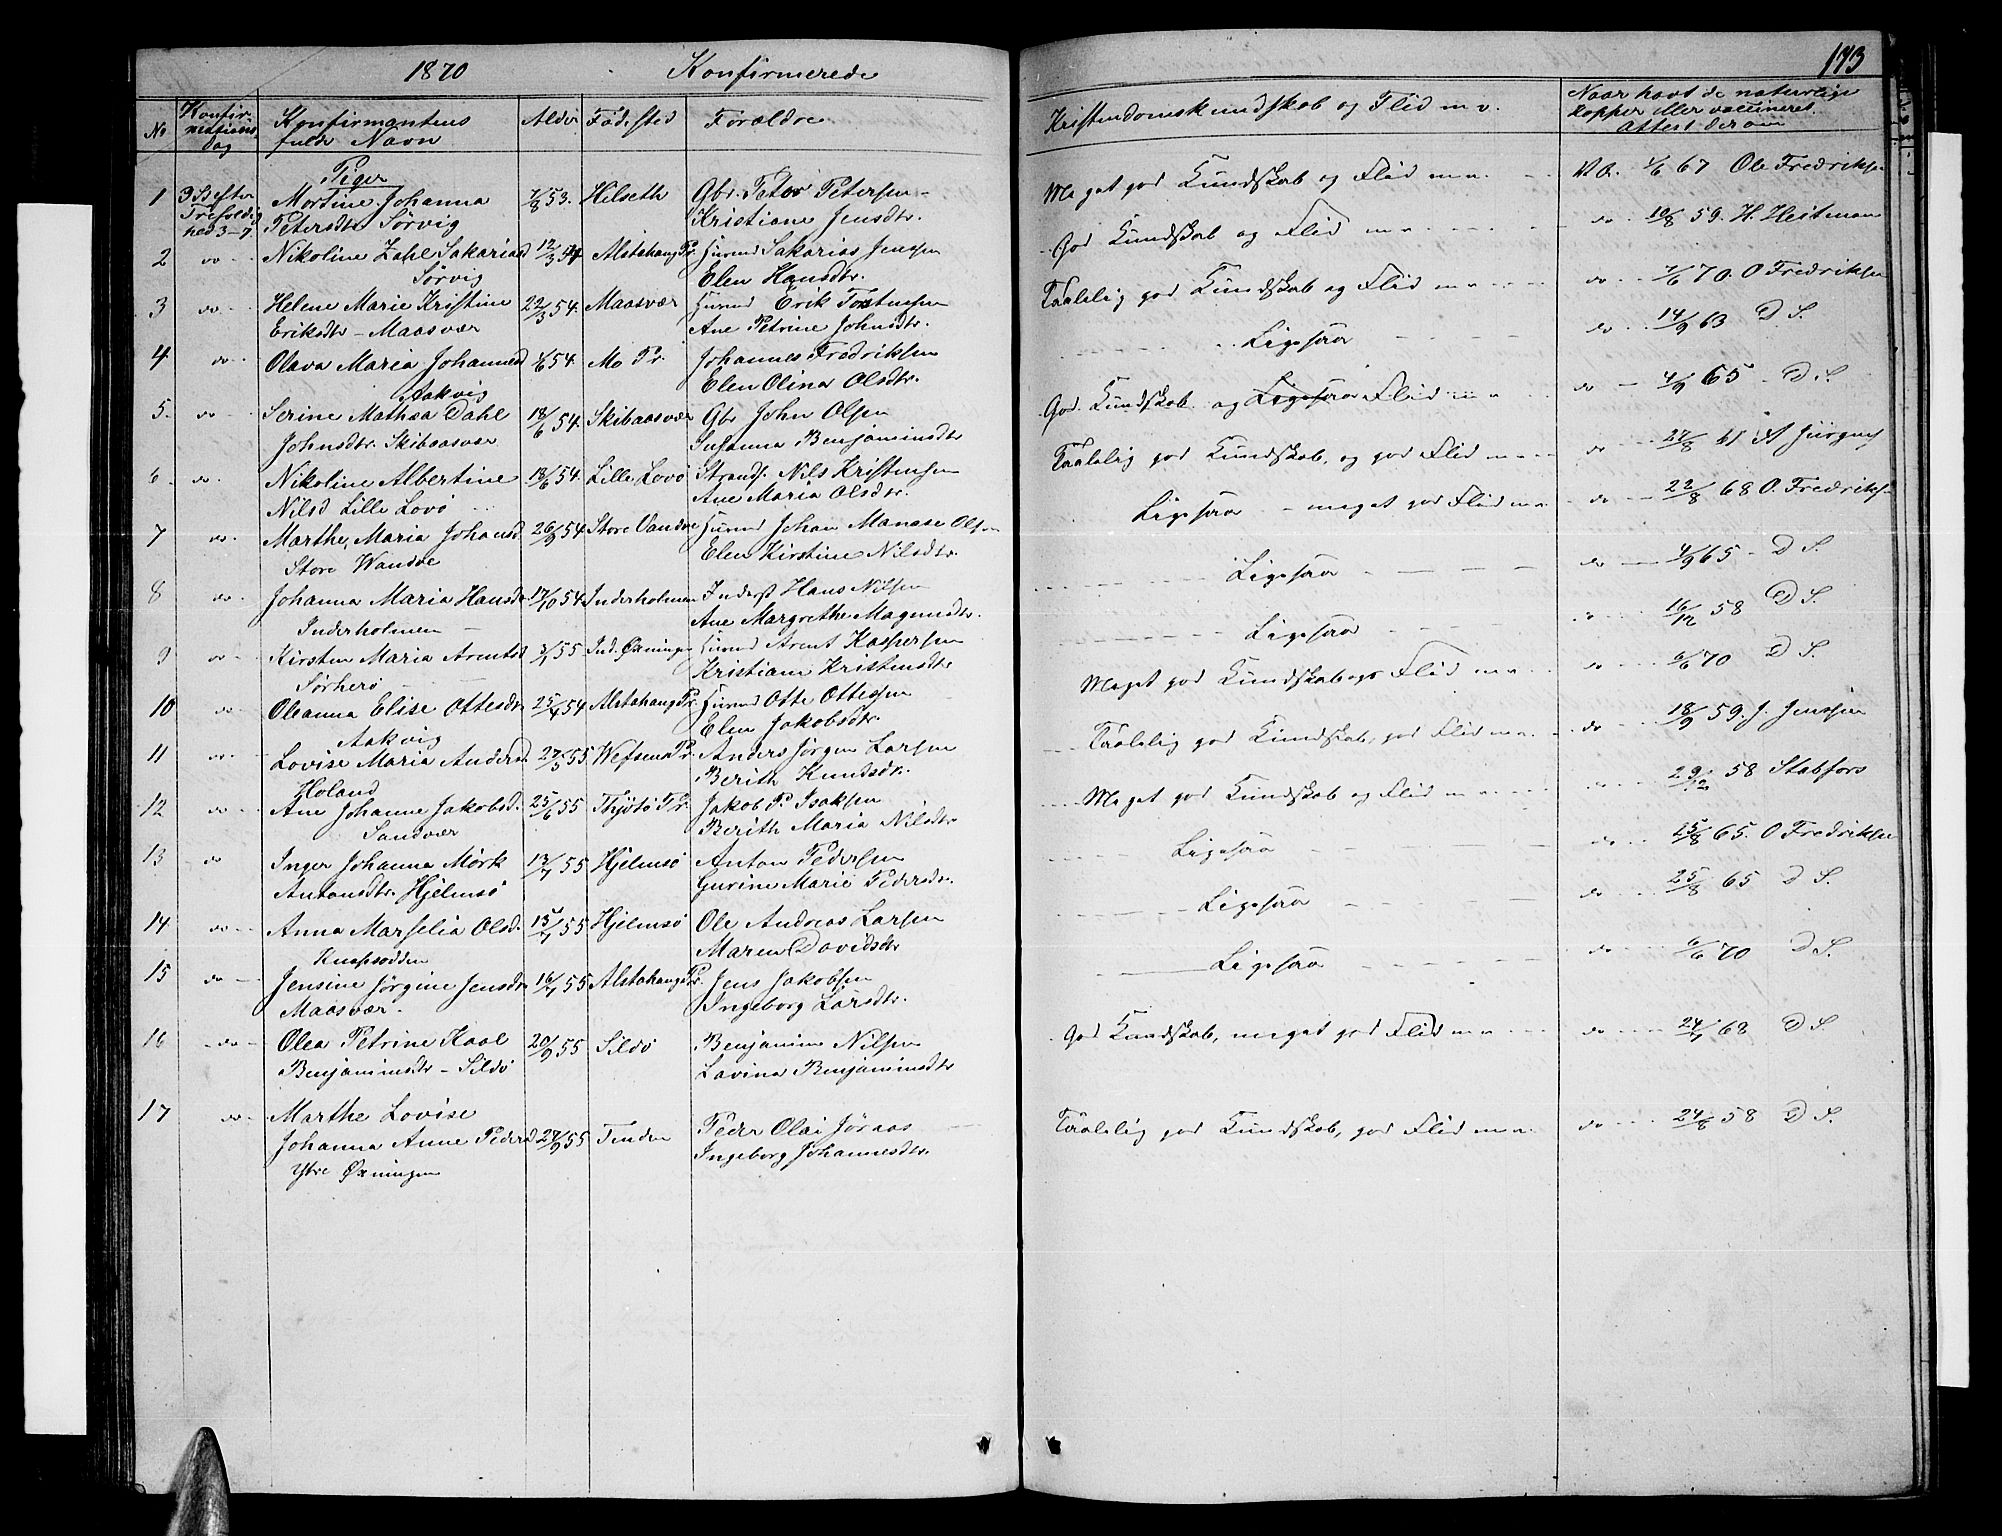 1870 Konfirmerede
No Konfirmations dag Konfirmantens fulde Navn Alder Födested Forældre
Piger
1 3 S. efter Trefoldighed 3-7 Mortine Johanna 7/8 53. Hilseth Gbr. Peter Petersen
Petersdtr Sørvig Kristiane Jensdtr.
2 do Nikoline Zahl Sakariasd 12/3 54 Alstahaug Pr. Huusmd Sakarias Jensen
Sørvig Elen Hansdtr.
3 do Helene Marie Kristine 22/3 54. Maasvær Huusmd Erik Tostensen
Eriksdtr - Maasvær Ane Petrine Johnsdtr.
4 do Olava Maria Johannesd 54. Mo Pr. Johannes Fredriksen
Aakvig Elen Olina Olsdtr.
5. do Serine Mathea Dahl 18/6 54. Skibaasvær Gbr John Olsen
Johnsdtr. Skibaasvær Susanna Benjaminsdtr
6 do Nikoline Albertine 18/6 54. Lille Lovö Strands. Nils Kristensen
Nilsd Lille Lovö Ane Maria Olsdtr.
7 do Marthe Maria Johansd 26/9 54 Store Vandve Huusmd Johan Manase Olsen
Store Wandve Elen Kirstine Nilsdtr.
8 do Johanna Maria Hansdtr 17/10 54 Inderholmen Inderst Hans Nilsen
Inderholmen Ane Margrethe Magnusdtr.
9 do Kirsten Maria Arentsd 3/1 55 Ind. Øxningen Huusmd Arent Kaspersen
Sørherö Kristiane Kristensdtr.
10 do Oleanna Elise Ottesdtr 25/4 54 Alstahaug Pr. Huusmd Otte Ottesen
Aakvig Elen Jakobsdtr.
11 do Lovise Maria Andersd 27/5 55 Wefsens Pr. Anders Jørgen Larsen
Holand Berith Knudsdtr.
12 do Ane Johanne Jakobsd. 25/6 55 Thjötö Pr. Jakob P. Isaksen
Sandvær Berith Maria Nilsdtr
13 do Inger Johanna Mørk 13/7 55 Hjelmsö Anton Pedersen
Antonsdtr. Hjelmsö Gurine Marie Pedersdtr.
14 do Anna Marselia Olsd. 15/7 55 Hjelmsö Ole Andreas Larsen
Knapsodden Maren Davidsdtr
15 do Jensine Jørgine Jensdtr 16/7 55 Alstahaug Pr. Jens Jakobsen
Maasvær. Ingeborg Larsdtr.
16 do Olea Petrine Kaal 20/9 55 Sildö Benjamin Nilsen
Benjaminsdtr - Sildö Lovina Benjaminsdtr
17 do Marthe Lovise
Johanna Anne Pedersd 24/9 55 Tenden Peder Olai Jønsas
Ytre Øxningen Ingeborg Johannesdtr.
173
Kristendomskundskab og Flid m. v. Naar havt de naturlige Kopper eller vaccineret. Attest derom
Meget god Kundskab og Flid m. v. 67 Ole Fredriksen
God Kundskab og Flid m. v. do 10/8 59. H. Heitman
Taalelig god Kundskab og Flid m. v. do 70. O Fredriksen
Ligesaa do 14/9 63 D S.
God Kundskab og Ligesaa Flid m. v. do 4/9 65 D S.
Taalelig god Kundskab, og god Flid m. v. do 27/8 61 A Jürgens
Ligesaa - meget god Flid m. v. do 22/8 68 O. Fredriks
Ligesaa do 4/9 65 - D S.
Ligesaa 16/12 58 D S.
Meget god Kundskab og Flid m. v. do 6/6 70 D S.
Taalelig god Kundskab, god Flid m. v. do 18/9 59. J. Jenssen
Meget god Kundskab og Flid m. v. do 29/12 58 Stabfors
Ligesaa do 25/8 65. O Fredriksen
Ligesaa do 25/8 65 D S.
Ligesaa do 6/6 70 D S.
God Kundskab, meget god Flid m. v. do 24/7 68 D S
Taalelig god Kundskab, god Flid m. v. do 24/8 58 D S.